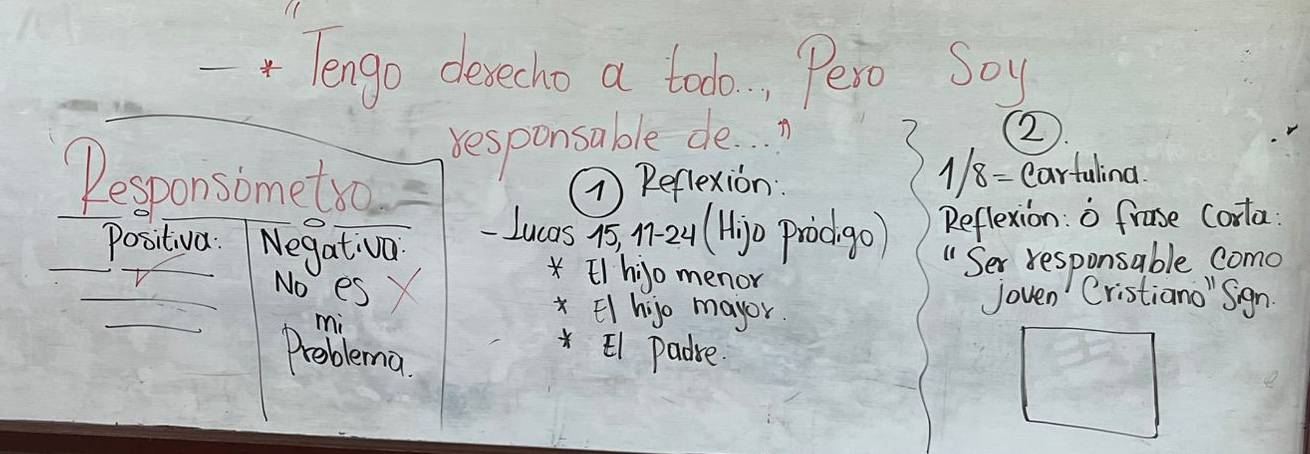 - * "Tengo derecho a todo..., Pero Soy
responsable de..."
Responsómetro.
Positiva:
Negativa:
No es X
mi
Problema.
① Reflexión:
- Lucas 15, 11-24 (Hijo pródigo)
* El hijo menor
* El hijo mayor.
* El padre.
②.
1/8 = Cartulina.
Reflexión: ó frase Corta:
"Ser responsable Como
joven Cristiano" Sign.